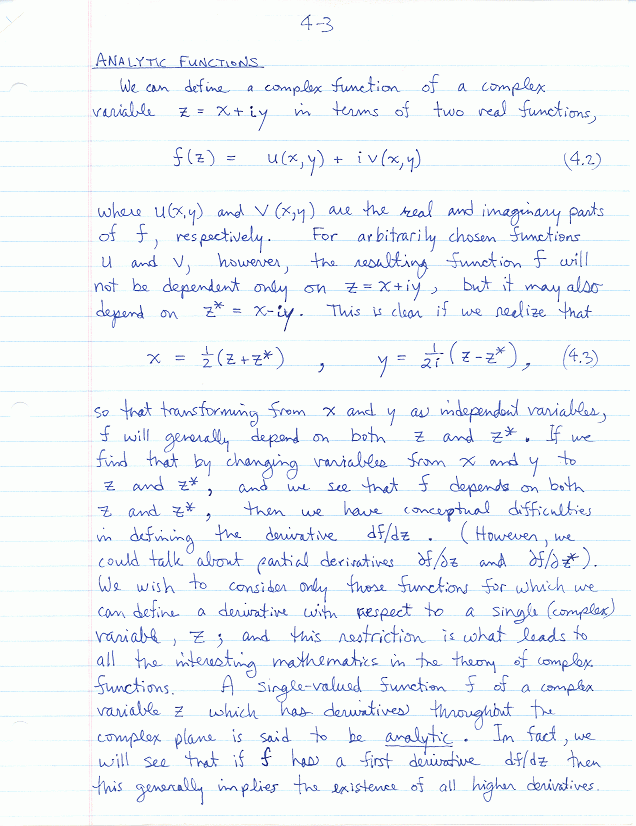 4-3
ANALYTIC FUNCTIONS
We can define a complex function of a complex
variable z = x+iy in terms of two real functions,
f(z) = u(x,y) + i v(x,y) (4.2)
where u(x,y) and v(x,y) are the real and imaginary parts
of f, respectively. For arbitrarily chosen functions
u and v, however, the resulting function f will
not be dependent only on z = x+iy, but it may also
depend on z* = x-iy. This is clear if we realize that
x = 1/2 (z+z*) , y = 1/2i (z-z*), (4.3)
so that transforming from x and y as independent variables,
f will generally depend on both z and z*. If we
find that by changing variables from x and y to
z and z*, and we see that f depends on both
z and z*, then we have conceptual difficulties
in defining the derivative df/dz. (However, we
could talk about partial derivatives ∂f/∂z and ∂f/∂z*).
We wish to consider only those functions for which we
can define a derivative with respect to a single (complex)
variable, z; and this restriction is what leads to
all the interesting mathematics in the theory of complex
functions. A single-valued function f of a complex
variable z which has derivatives throughout the
complex plane is said to be analytic. In fact, we
will see that if f has a first derivative df/dz then
this generally implies the existence of all higher derivatives.